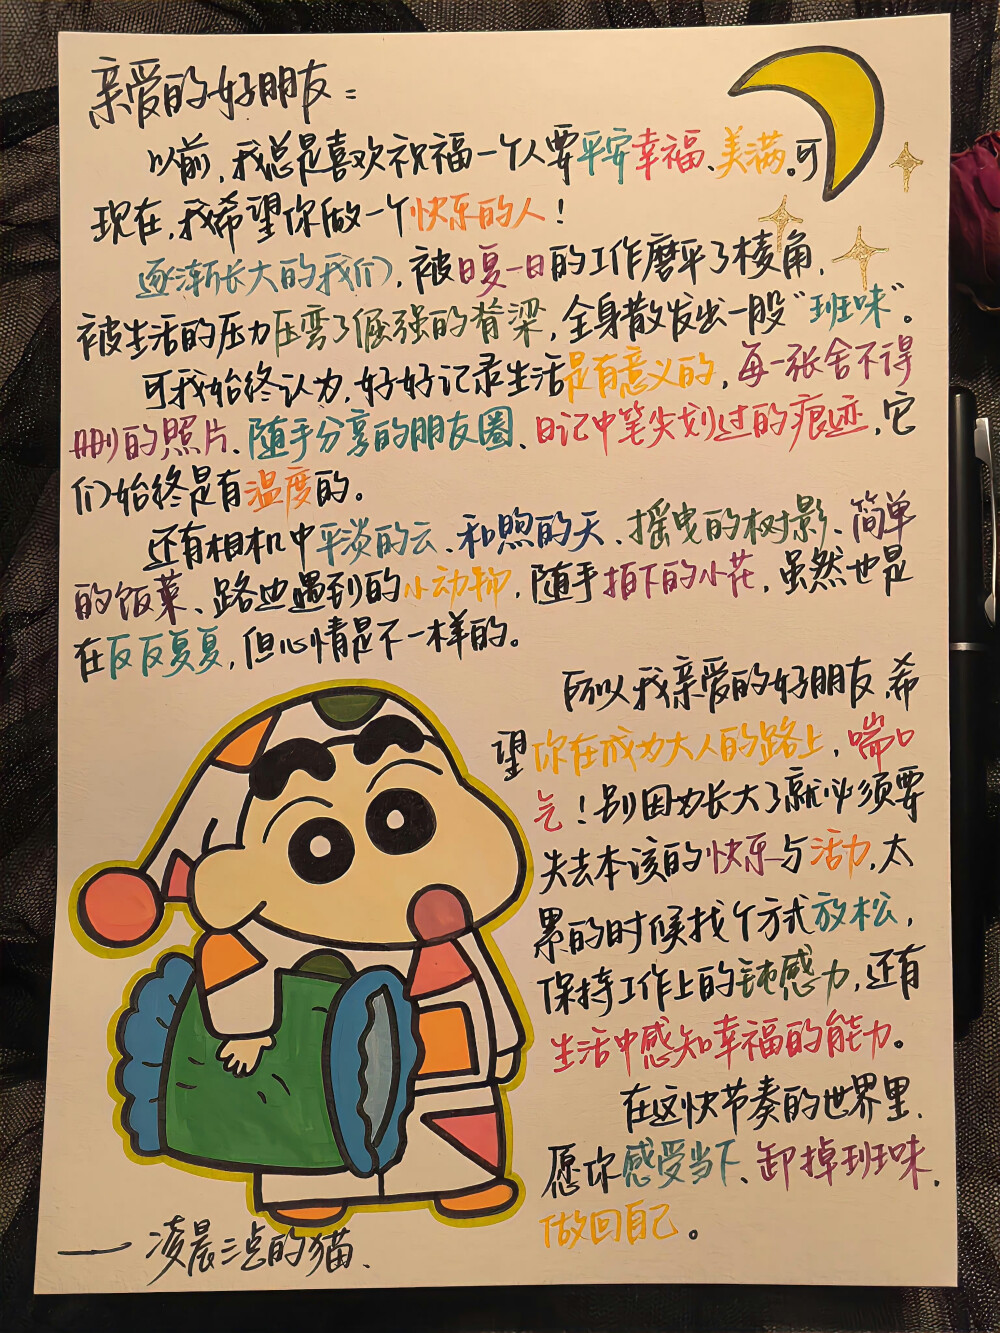 亲爱的好朋友：
以前，我总是喜欢祝福一个人要平安幸福、美满。可
现在，我希望你做一个快乐的人！
逐渐长大的我们，被日复一日的工作磨平了棱角，
被生活的压力压弯了倔强的脊梁，全身散发出一股“班味”。
可我始终认为，好好记录生活是有意义的，每一张舍不得
删的照片、随手分享的朋友圈、日记中笔尖划过的痕迹，它
们始终是有温度的。
还有相机中平淡的云、和煦的天、摇曳的树影、简单
的饭菜、路边遇到的小动物，随手拍下的小花，虽然也是
在反反复复，但心情是不一样的。
所以我亲爱的好朋友，希
望你在成为大人的路上，喘口
气！别因为长大了就必须要
失去本该的快乐与活力，太
累的时候找个方式放松，
保持工作上的钝感力，还有
生活中感知幸福的能力。
在这快节奏的世界里，
愿你感受当下、卸掉班味，
做回自己。
——凌晨三点的猫、